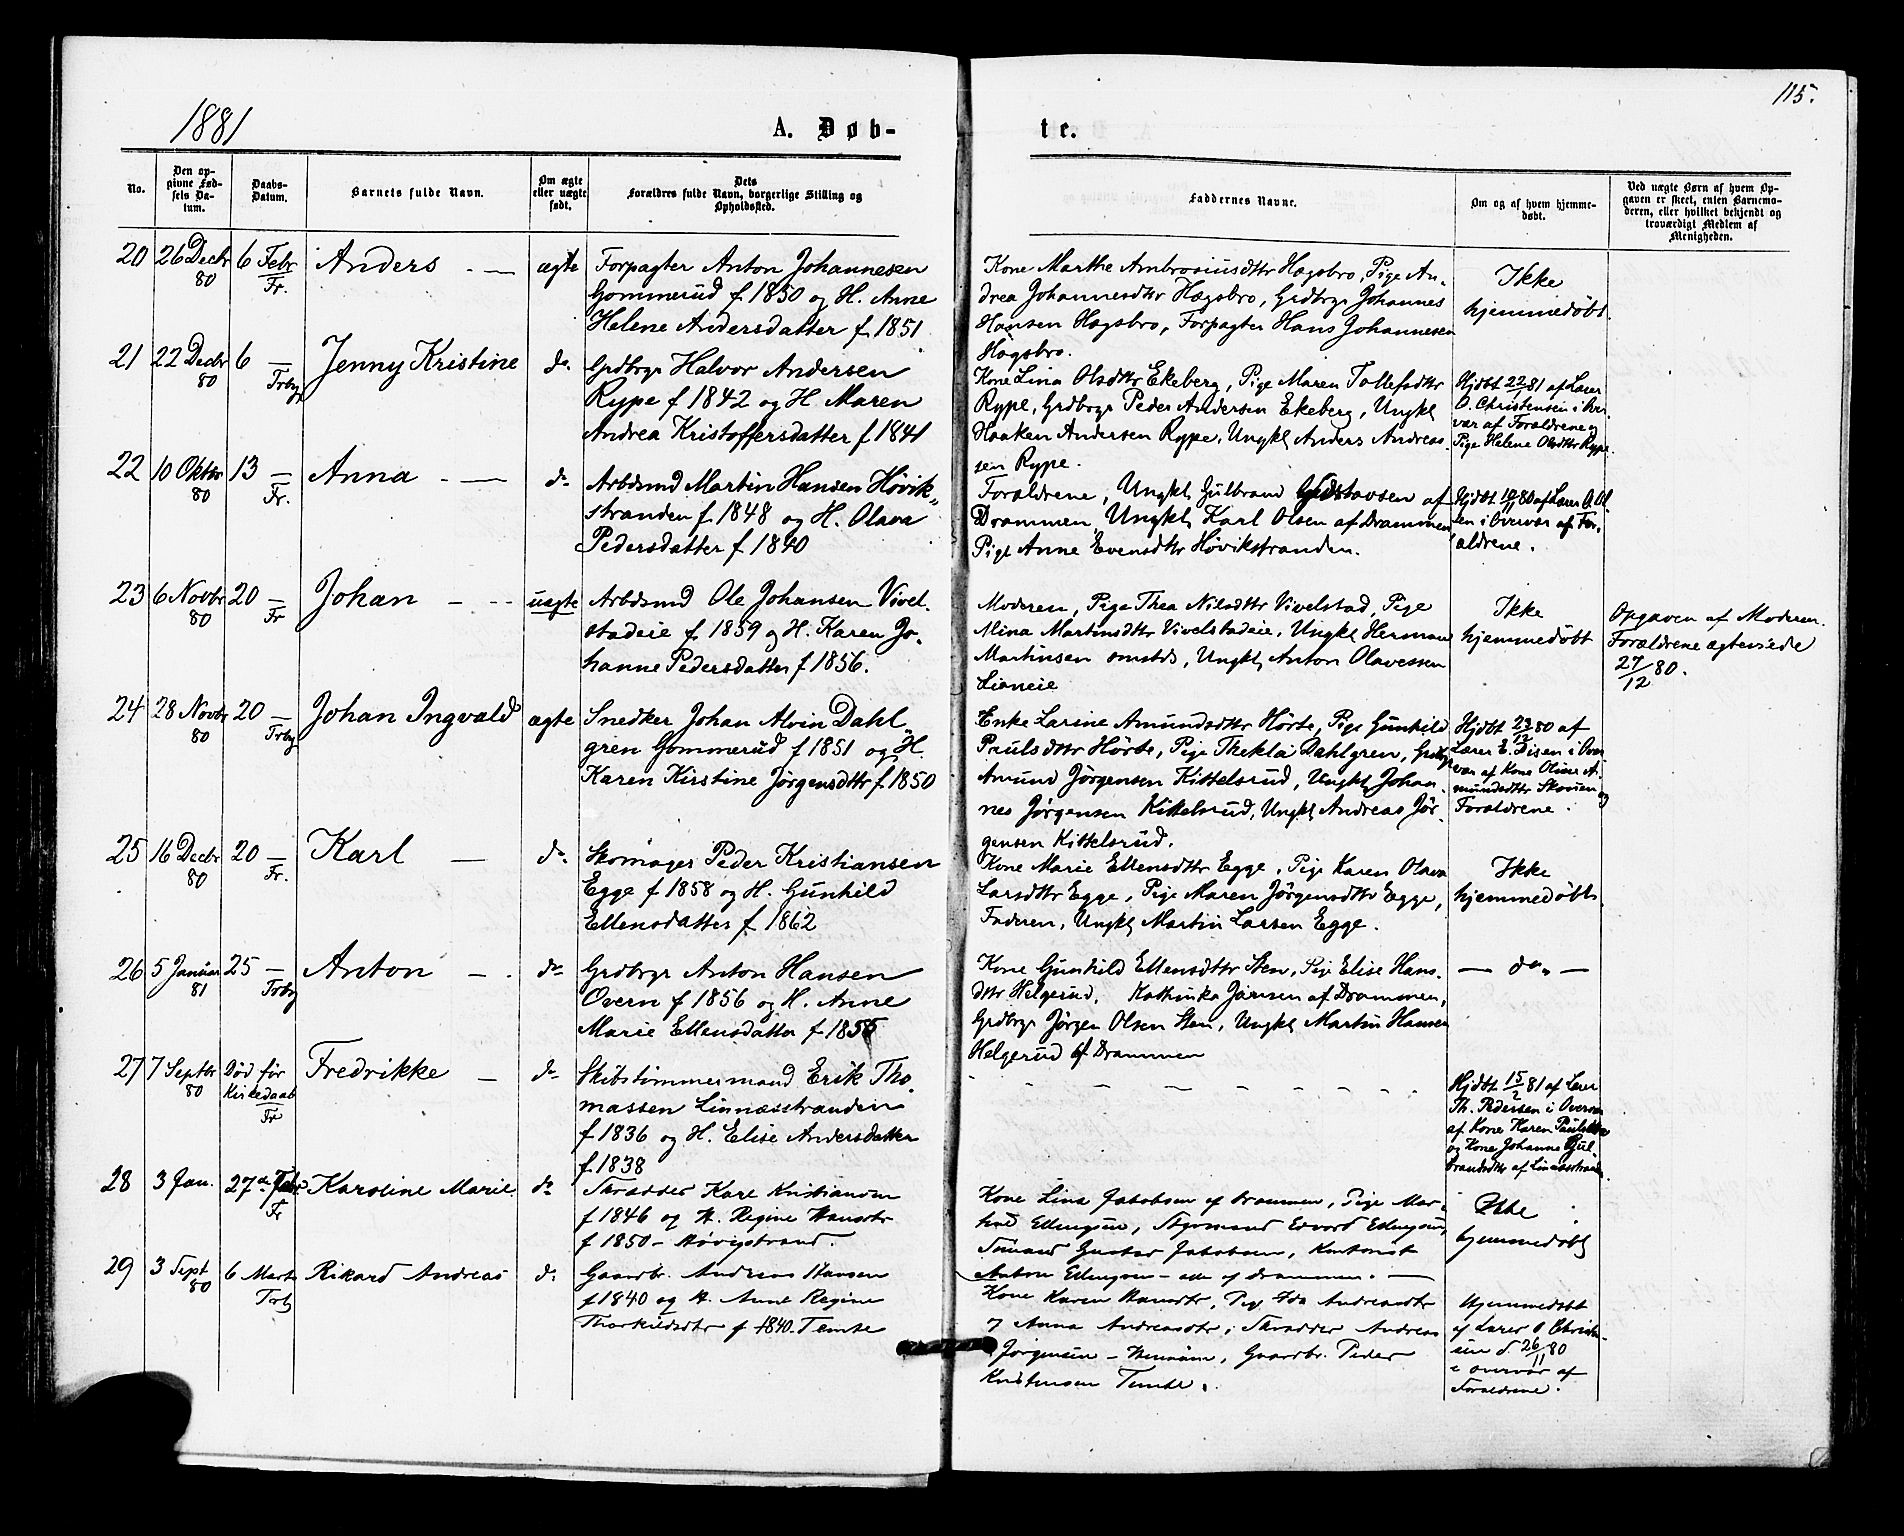 115.
1881
A. Døb-
te.
No.
Den op-
givne Fød-
sels Da-
tum.
Daabs-
Datum.
Barnets fulde Navn.
Om ægte
eller uægte
født.
Dets
Forældres fulde Navn, borgerlige Stilling og
Opholdssted.
Faddernes Navne.
Om og af hvem hjemme-
døbt.
Ved uægte Børn af hvem Op-
gaven er skeet, enten Barnemo-
deren, eller hvilket bekjendt og
troværdigt Medlem af
Menigheden.
20
26 Decbr
80
6 Febr
Fr.
Anders
ægte
Forpagter Anton Johannesen
Gommerud f. 1850 og H. Anne
Helene Andersdatter f. 1851
Kone Marthe Ambrosiusdttr Hægsbro, Pige An-
drea Johannesdttr Hægsbro, Grdbrgr Johannes
Hansen Hægsbro, Forpagter Hans Johannesen
Hægsbro.
Ikke
hjemmedøbt.
21
22 Decbr
80
6 —
Trby
Jenny Kristine
do.
Grdbrgr Halvor Andersen
Rype f 1842 og H Maren
Andrea Kristoffersdatter f. 1841
Kone Lina Olsdttr Ekeberg, Pige Maren Tollefsdttr
Rype, Grdbrgr Peder Andersen Ekeberg, Ungkl
Haaken Andersen Rype, Ungkl Anders Andreas-
sen Rype.
Hjdbt 22/1 81 af Lærer
O. Christensen i Over-
vær af Forældrene og
Pige Helene Olsdttr Rype.
22
10 Oktbr
80
13 —
Fr.
Anna
do.
Arbdsmd Martin Hansen Høvik-
stranden f. 1848 og H. Olava
Pedersdatter f. 1840
Forældrene, Ungkl Gulbrand Gustavsen af
Drammen, Ungkl Karl Olsen af Drammen,
Pige Anne Evensdttr Høvikstranden.
Hjdbt 19/11 80 af Lærer O. Ol-
sen i Overvær af For-
ældrene.
23
6 Novbr
80
20 —
Fr
Johan
uægte
Arbdsmd Ole Johansen Vivel-
stadeie f. 1859 og H. Karen Jo-
hanne Pedersdatter f. 1856.
Moderen, Pige Thea Nilsdttr Vivelstad, Pige
Mina Martinsdttr Vivelstadeie, Ungkl Herman
Martinsen smstds, Ungkl Anton Olavessen
Lianeie
Ikke
hjemmedøbt
Opgaven af Moderen.
Forældrene ægteviede
27/12 80.
24
28 Novbr
80
20 —
Trby
Johan Ingvald
ægte
Snedker Johan Alvin Dahl
gren Gommerud f 1851 og H.
Karen Kirstine Jørgensdttr f. 1850
Enke Larine Amundsdttr Hørte, Pige Gunhild
Paulsdttr Hørte, Pige Thekla Dahlgren, Grdbrgr
Amund Jørgensen Kittelsrud, Ungkl Johan-
nes Jørgensen Kittelsrud, Ungkl Andreas Jør-
gensen Kittelsrud.
Hjdbt 23/12 80 af
Lærer E. Disen i Over-
vær af Kone Oline A-
mundsdttr Skouen og
Forældrene.
25
16 Decbr
80
20 —
Fr.
Karl
do.
Skomager Peder Kristiansen
Egge f 1858 og H. Gunhild
Ellensdatter f. 1862
Kone Marie Ellensdttr Egge, Pige Karen Olava
Larsdttr Egge, Pige Maren Jørgensdttr Egge,
Faderen, Ungkl Martin Larsen Egge.
Ikke
hjemmedøbt.
26
5 Januar
81
25 —
Trby
Anton
do.
Grdbrgr Anton Hansen
Overn f 1856 og H. Anne
Marie Ellensdatter f 1855
Kone Gunhild Ellensdttr Sten, Pige Elise Hans-
dttr Helgerud, Kathinka Jansen af Drammen,
Grdbrgr Jørgen Olsen Sten, Ungkl Martin Hansen
Helgerud af Drammen
— do. —
27
7 Septbr
80
Død før
Kirkedaab
Fr
Fredrikke
do.
Skibstømmermand Erik Tho-
massen Linnæsstranden
f 1836 og H. Elise Andersdatter
f. 1838
Hjdbt 15/2 81 af Lærer
Th. Pedersen i Overvær
af Kone Karen Paulsdttr
og Kone Johanne Gul-
brandsdttr af Linnæsstrand
28
3 Jan.
27de Febr
Fr
Karoline Marie
do
Skrædder Karl Kristiansen
f 1846 og H. Regine Hansdtr
f 1850 – Høvigstrand.
Kone Lina Jakobsen af Drammen, Pige Mat-
hild Ellingsen, Styrmand Edvard Ellingsen,
Sömand Gustav Jakobsen, Kontorist
Anton Ellingsen – alle af Drammen. —
Ikke
hjemmedøbt
29
3 Sept
80
6 Marts
Trby
Rikard Andreas
do
Gaardbr. Andreas Hansen
f 1840 og H. Anne Regine
Thorkildsdtr f 1840. Temte
Kone Karen Hansdtr, Pige Ida Andreasdtr
og Anna Andreasdtr, Skrædder Andreas
Jørgensen –
Gaardbr. Peder
Kristensen Temte.
Hjemmedøbt
af Lærer O Christen-
sen d 26/11 80
i overvær af
Forældrene.